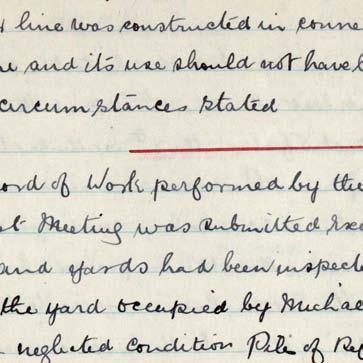 line was constructed in conne
and it's use should not have b
circumstances stated
ord of Work performed by the
st Meeting was submitted Exe
and yards had been inspecte
the yard occupied by Michae
neglected condition Pile of Re